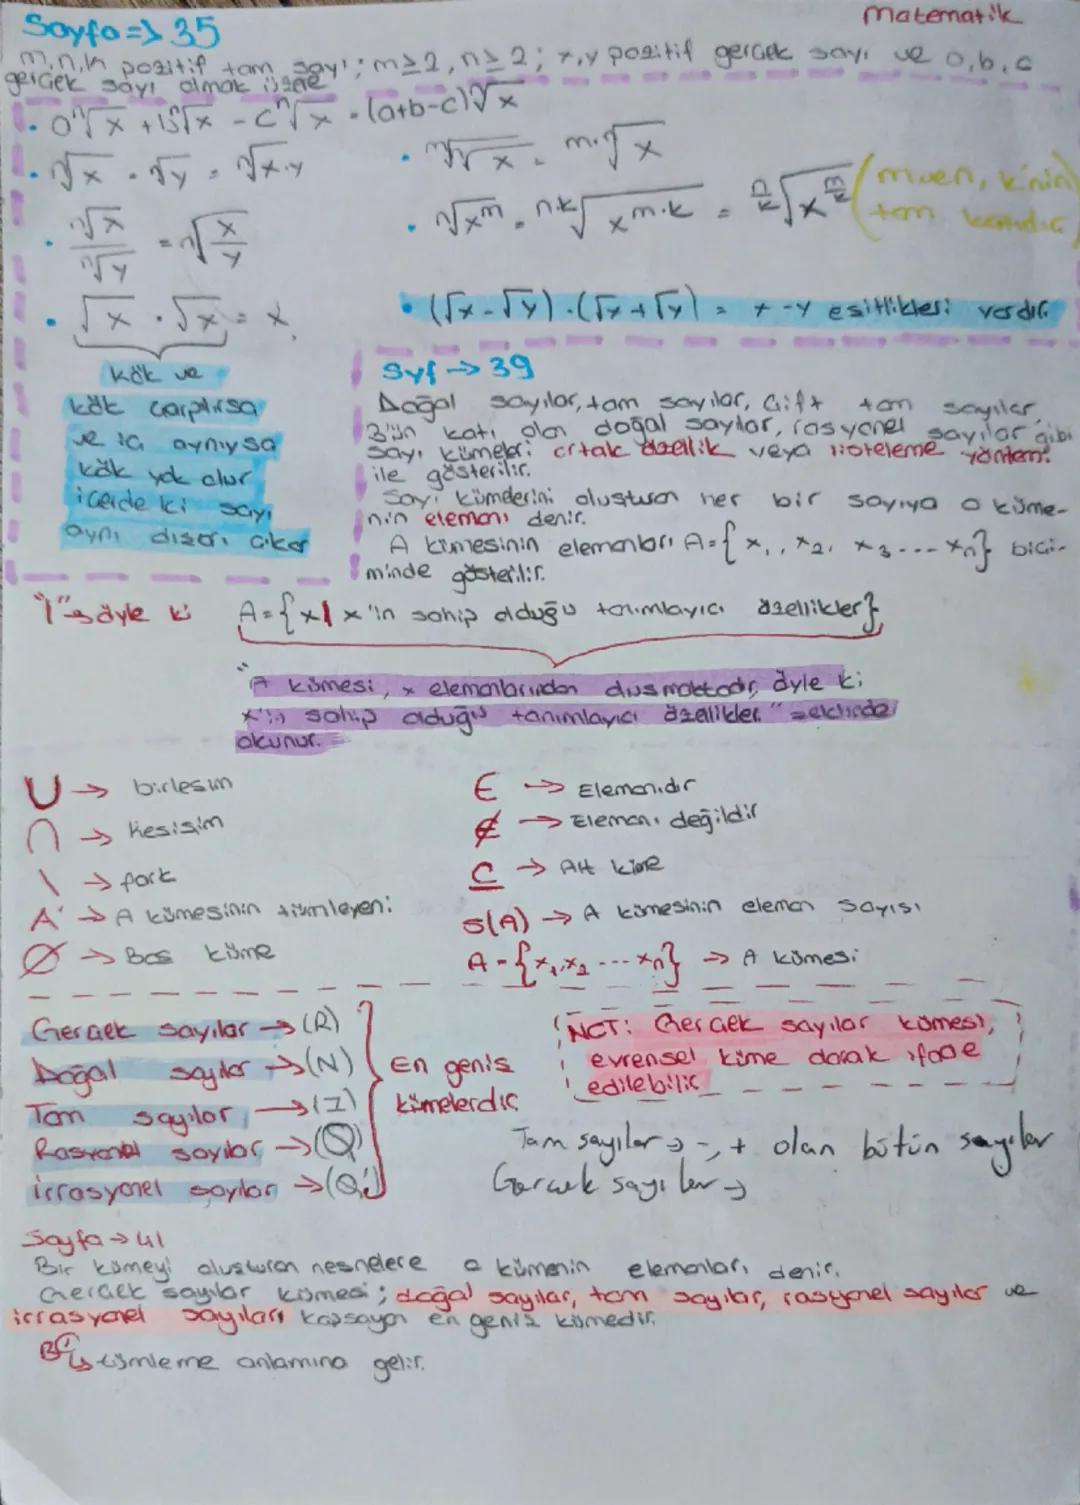 Matematik
Sayfa => 35
m,n,k pozitif tam sayı; m≥2, n≥2; x,y pozitif gerçek sayı ve a,b,c
gerçek sayı olmak üzere
• aⁿ√x + bⁿ√x - cⁿ√x = (a+b-c)ⁿ√x
• ⁿ√x · ⁿ√y = ⁿ√x·y
• ᵐ√ⁿ√x = ᵐ·ⁿ√x
• ⁿ√x / ⁿ√y = ⁿ√(x/y)
• ⁿ√xᵐ = ⁿ·ᵏ√xᵐ·ᵏ = ⁿ/ᵏ√x^(m/k) (m ve n, k'nin
tam katıdır)
• √x · √x = x
• (√x - √y) · (√x + √y) = x - y eşitlikleri vardır.
kök ve
kök çarpılırsa
ve içi aynıysa
kök yok olur
içerde ki sayı
aynı dışarı çıkar
Syf → 39
Doğal sayılar, tam sayılar, çift tam sayılar,
3'ün katı olan doğal sayılar, rasyonel sayılar gibi
sayı kümeleri ortak özellik veya listeleme yöntemi
ile gösterilir.
Sayı kümelerini oluşturan her bir sayıya oküme-
nin elemanı denir.
A kümesinin elemanları A = { x₁, x₂, x₃ ... xₙ} biçi-
minde gösterilir.
"|" → öyle ki A = { x | x'in sahip olduğu tanımlayıcı özellikler}
"A kümesi, x elemanlarından oluşmaktadır, öyle ki
x'in sahip olduğu tanımlayıcı özelikler." şeklinde
okunur.
∪ → birleşim
∩ → kesişim
\ → fark
A' → A kümesinin tümleyeni
∅ → Boş küme
∈ → Elemanıdır
∉ → Elemanı değildir
⊆ → Alt küme
s(A) → A kümesinin eleman sayısı
A = {x₁,x₂ ... xₙ} → A kümesi
Gerçek sayılar → (R)
Doğal sayılar → (N)
Tam sayılar → (Z)
Rasyonel sayılar → (Q)
irrasyonel sayılar → (Q')
En geniş
kümelerdir.
NOT: Gerçek sayılar kümesi,
evrensel küme olarak ifade
edilebilir.
Tam sayılar → -, + olan bütün sayılar
Gerçek sayılar →
Sayfa → 41
Bir kümeyi oluşturan nesnelere o kümenin elemanları denir.
Gerçek sayılar kümesi; doğal sayılar, tam sayılar, rasyonel sayılar ve
irrasyonel sayıları kapsayan en geniş kümedir.
B' → tümleme anlamına gelir.